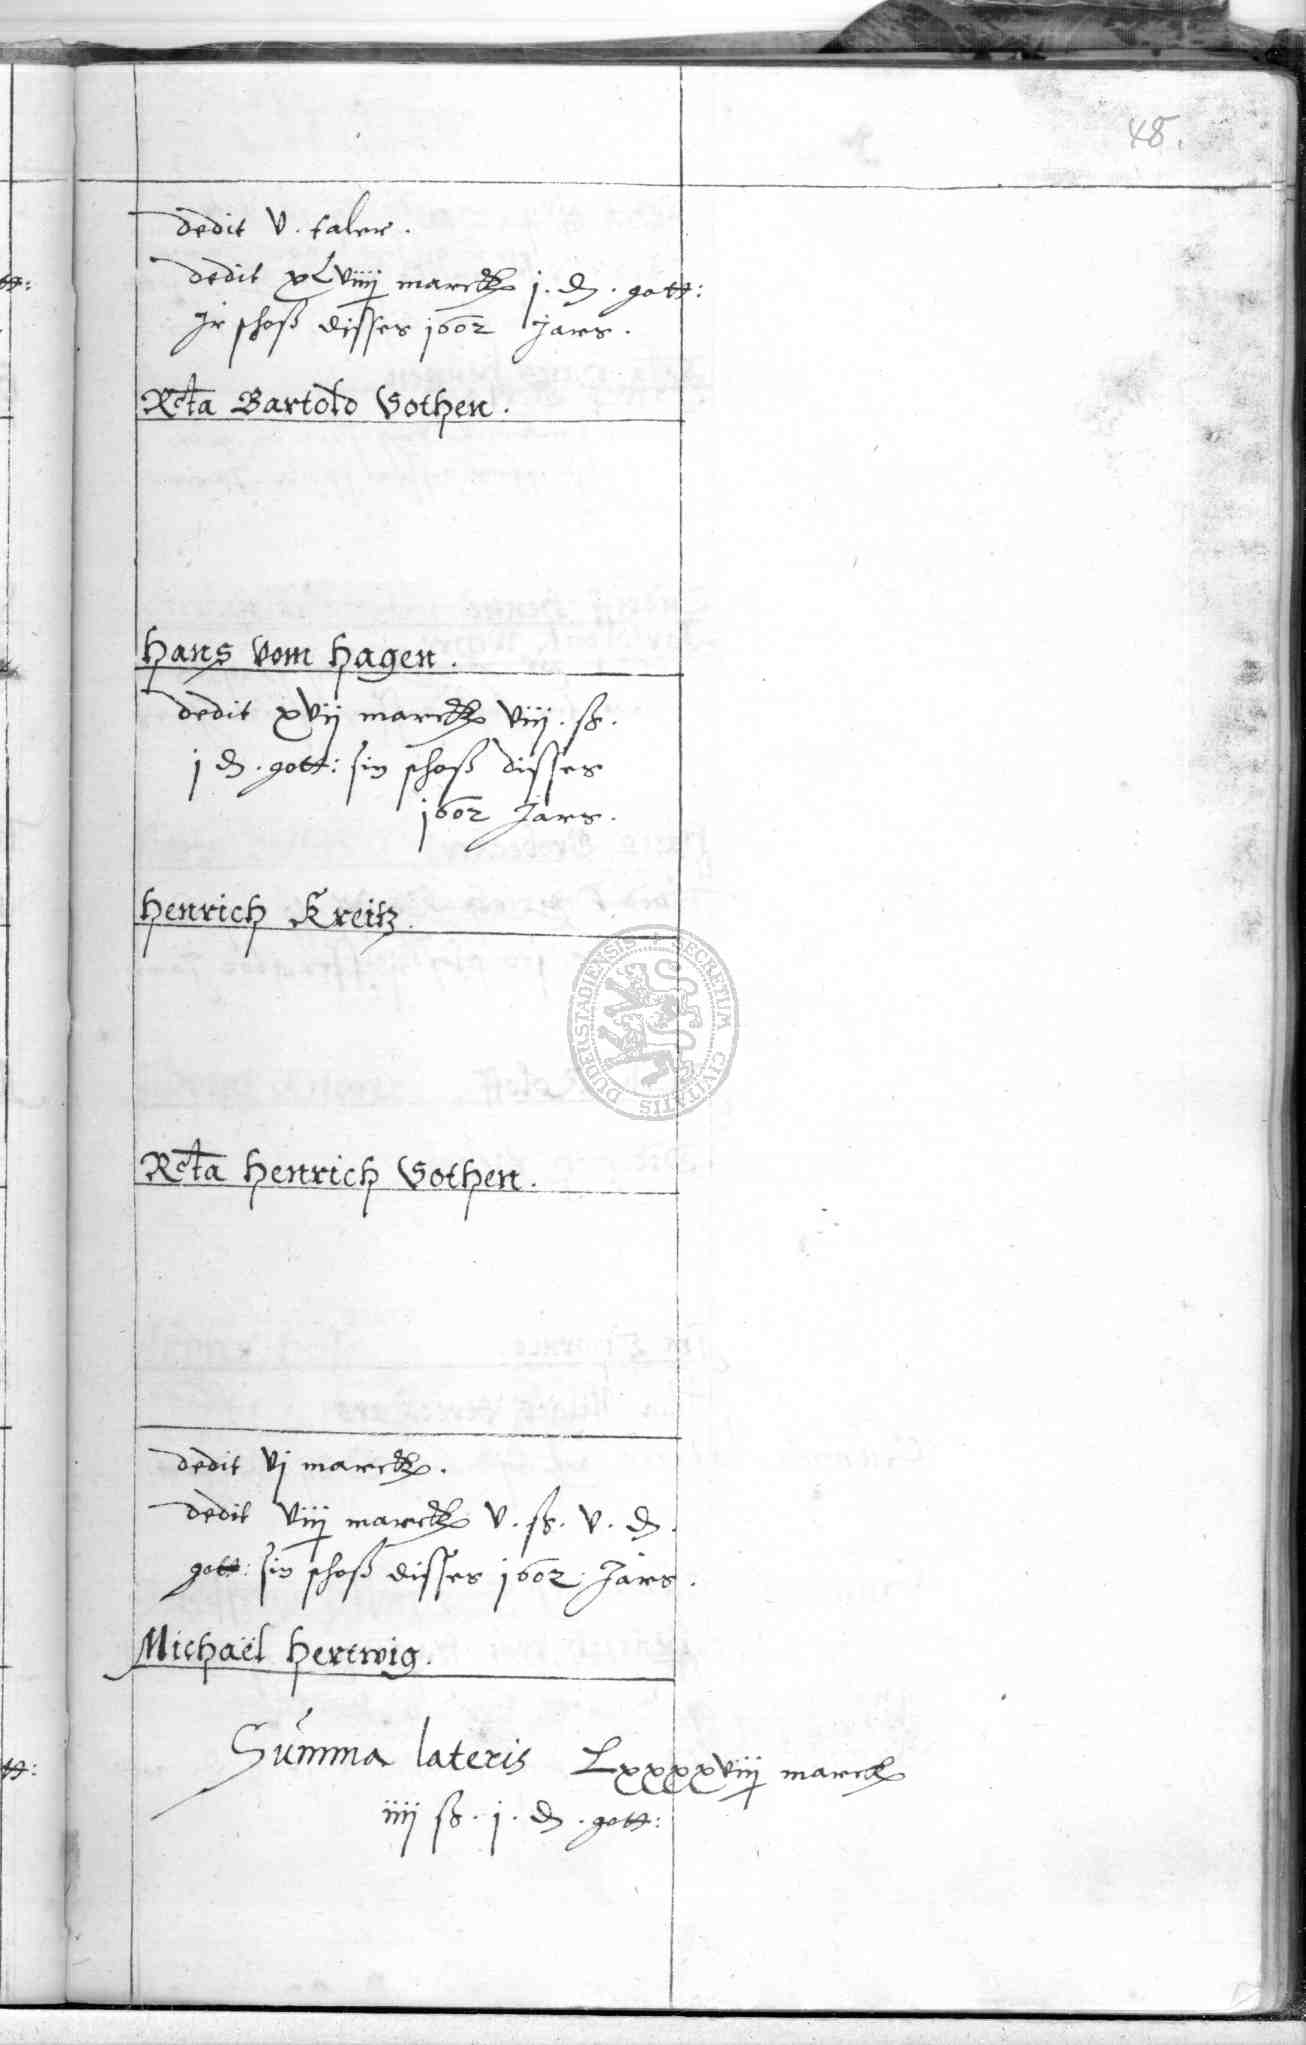 48.
dedit v. taler.
dedit xLviiij marck j. d. gott:
Jr schoß disses 1602 Jars.
Rcta Bartold Gothen.
Hans vom Hagen.
dedit xvij marck viij. ß.
j d. gott: sin schoß disses
1602 Jars.
Henrich Kreitz.
Rcta Henrich Gothen.
dedit vj marck.
dedit viij marck v. ß. v. d.
gott: sin schoß disses 1602 Jars.
Michaël Hertwig.
Summa lateris Lxxxxviij marck
iiij ß. j. d. gott:
DUDERSTADIENSIS SECRETUM CIVITATIS